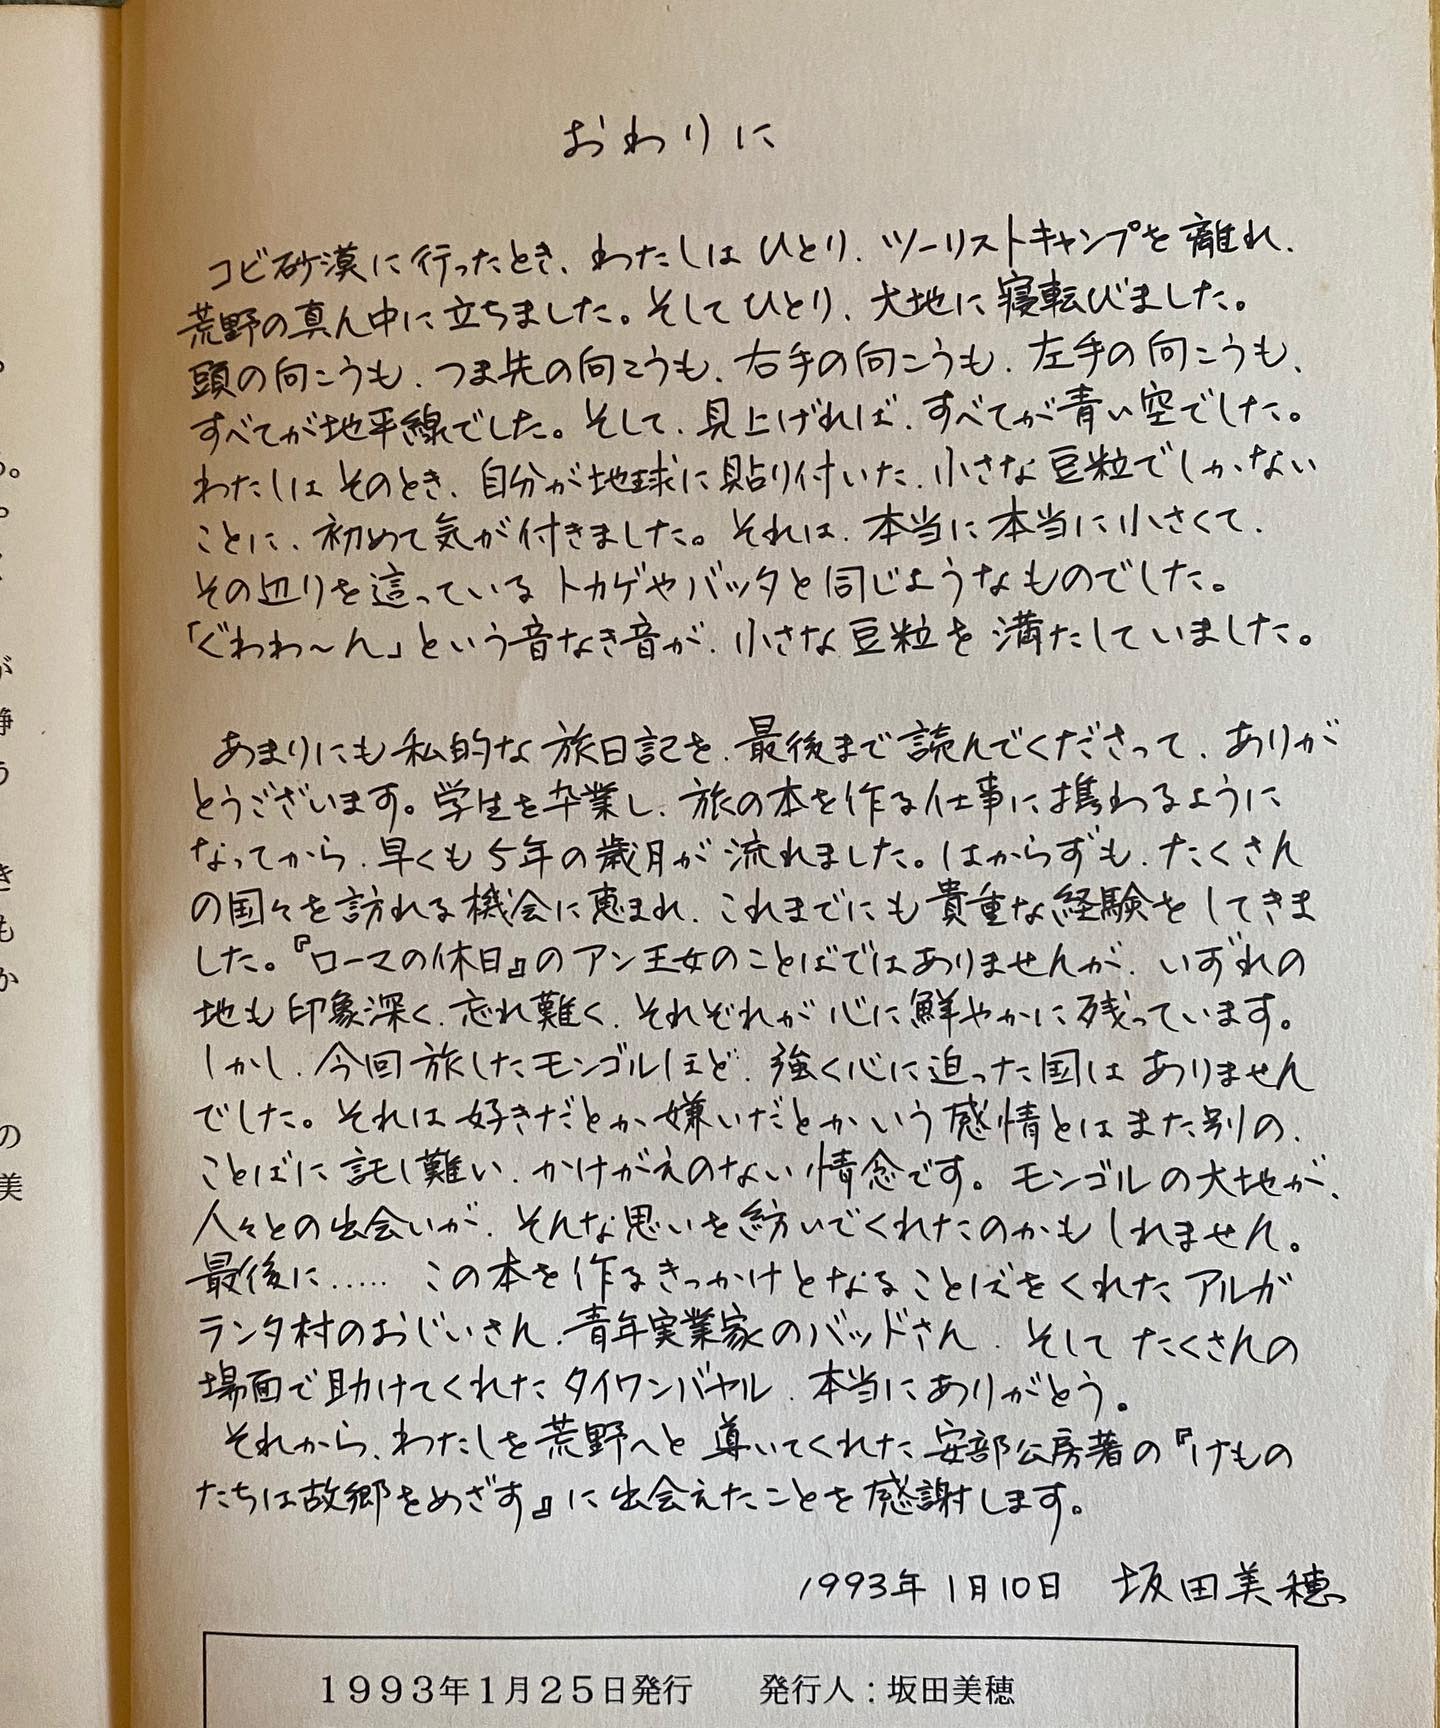 おわりに
コビ砂漠に行ったとき、わたしはひとり、ツーリストキャンプを離れ、
荒野の真ん中に立ちました。そしてひとり、大地に寝転びました。
頭の向こうも、つま先の向こうも、右手の向こうも、左手の向こうも、
すべてが地平線でした。そして、見上げれば、すべてが青い空でした。
わたしはそのとき、自分が地球に貼り付いた、小さな豆粒でしかない
ことに、初めて気が付きました。それは、本当に本当に小さくて、
その辺りを這っているトカゲやバッタと同じようなものでした。
「ぐわわ〜ん」という音なき音が、小さな豆粒を満たしていました。
あまりにも私的な旅日記を、最後まで読んでくださって、ありが
とうございます。学生を卒業し、旅の本を作る仕事に携わるように
なってから、早くも5年の歳月が流れました。はからずも、たくさん
の国々を訪れる機会に恵まれ、これまでにも貴重な経験をしてきま
した。『ローマの休日』のアン王女のことばではありませんが、いずれの
地も印象深く、忘れ難く、それぞれが心に鮮やかに残っています。
しかし、今回旅したモンゴルほど、強く心に迫った国はありません
でした。それは好きだとか嫌いだとかいう感情とはまた別の、
ことばに託し難い、かけがえのない情念です。モンゴルの大地が、
人々との出会いが、そんな思いを紡いでくれたのかもしれません。
最後に……この本を作るきっかけとなることばをくれたアルガ
ランタ村のおじいさん、青年実業家のバッドさん、そしてたくさんの
場面で助けてくれたタイワンバヤル、本当にありがとう。
それから、わたしを荒野へと導いてくれた安部公房著の『けもの
たちは故郷をめざす』に出会えたことを感謝します。
1993年1月10日 坂田美穂
1993年1月25日発行 発行人:坂田美穂